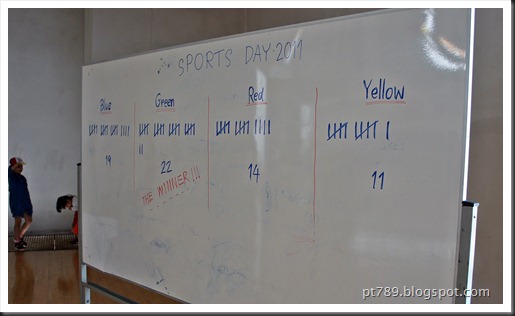 SPORTS DAY·2011
Blue
19
Green
22
THE WINNER!!!
Red
14
Yellow
11
pt789.blogspot.com